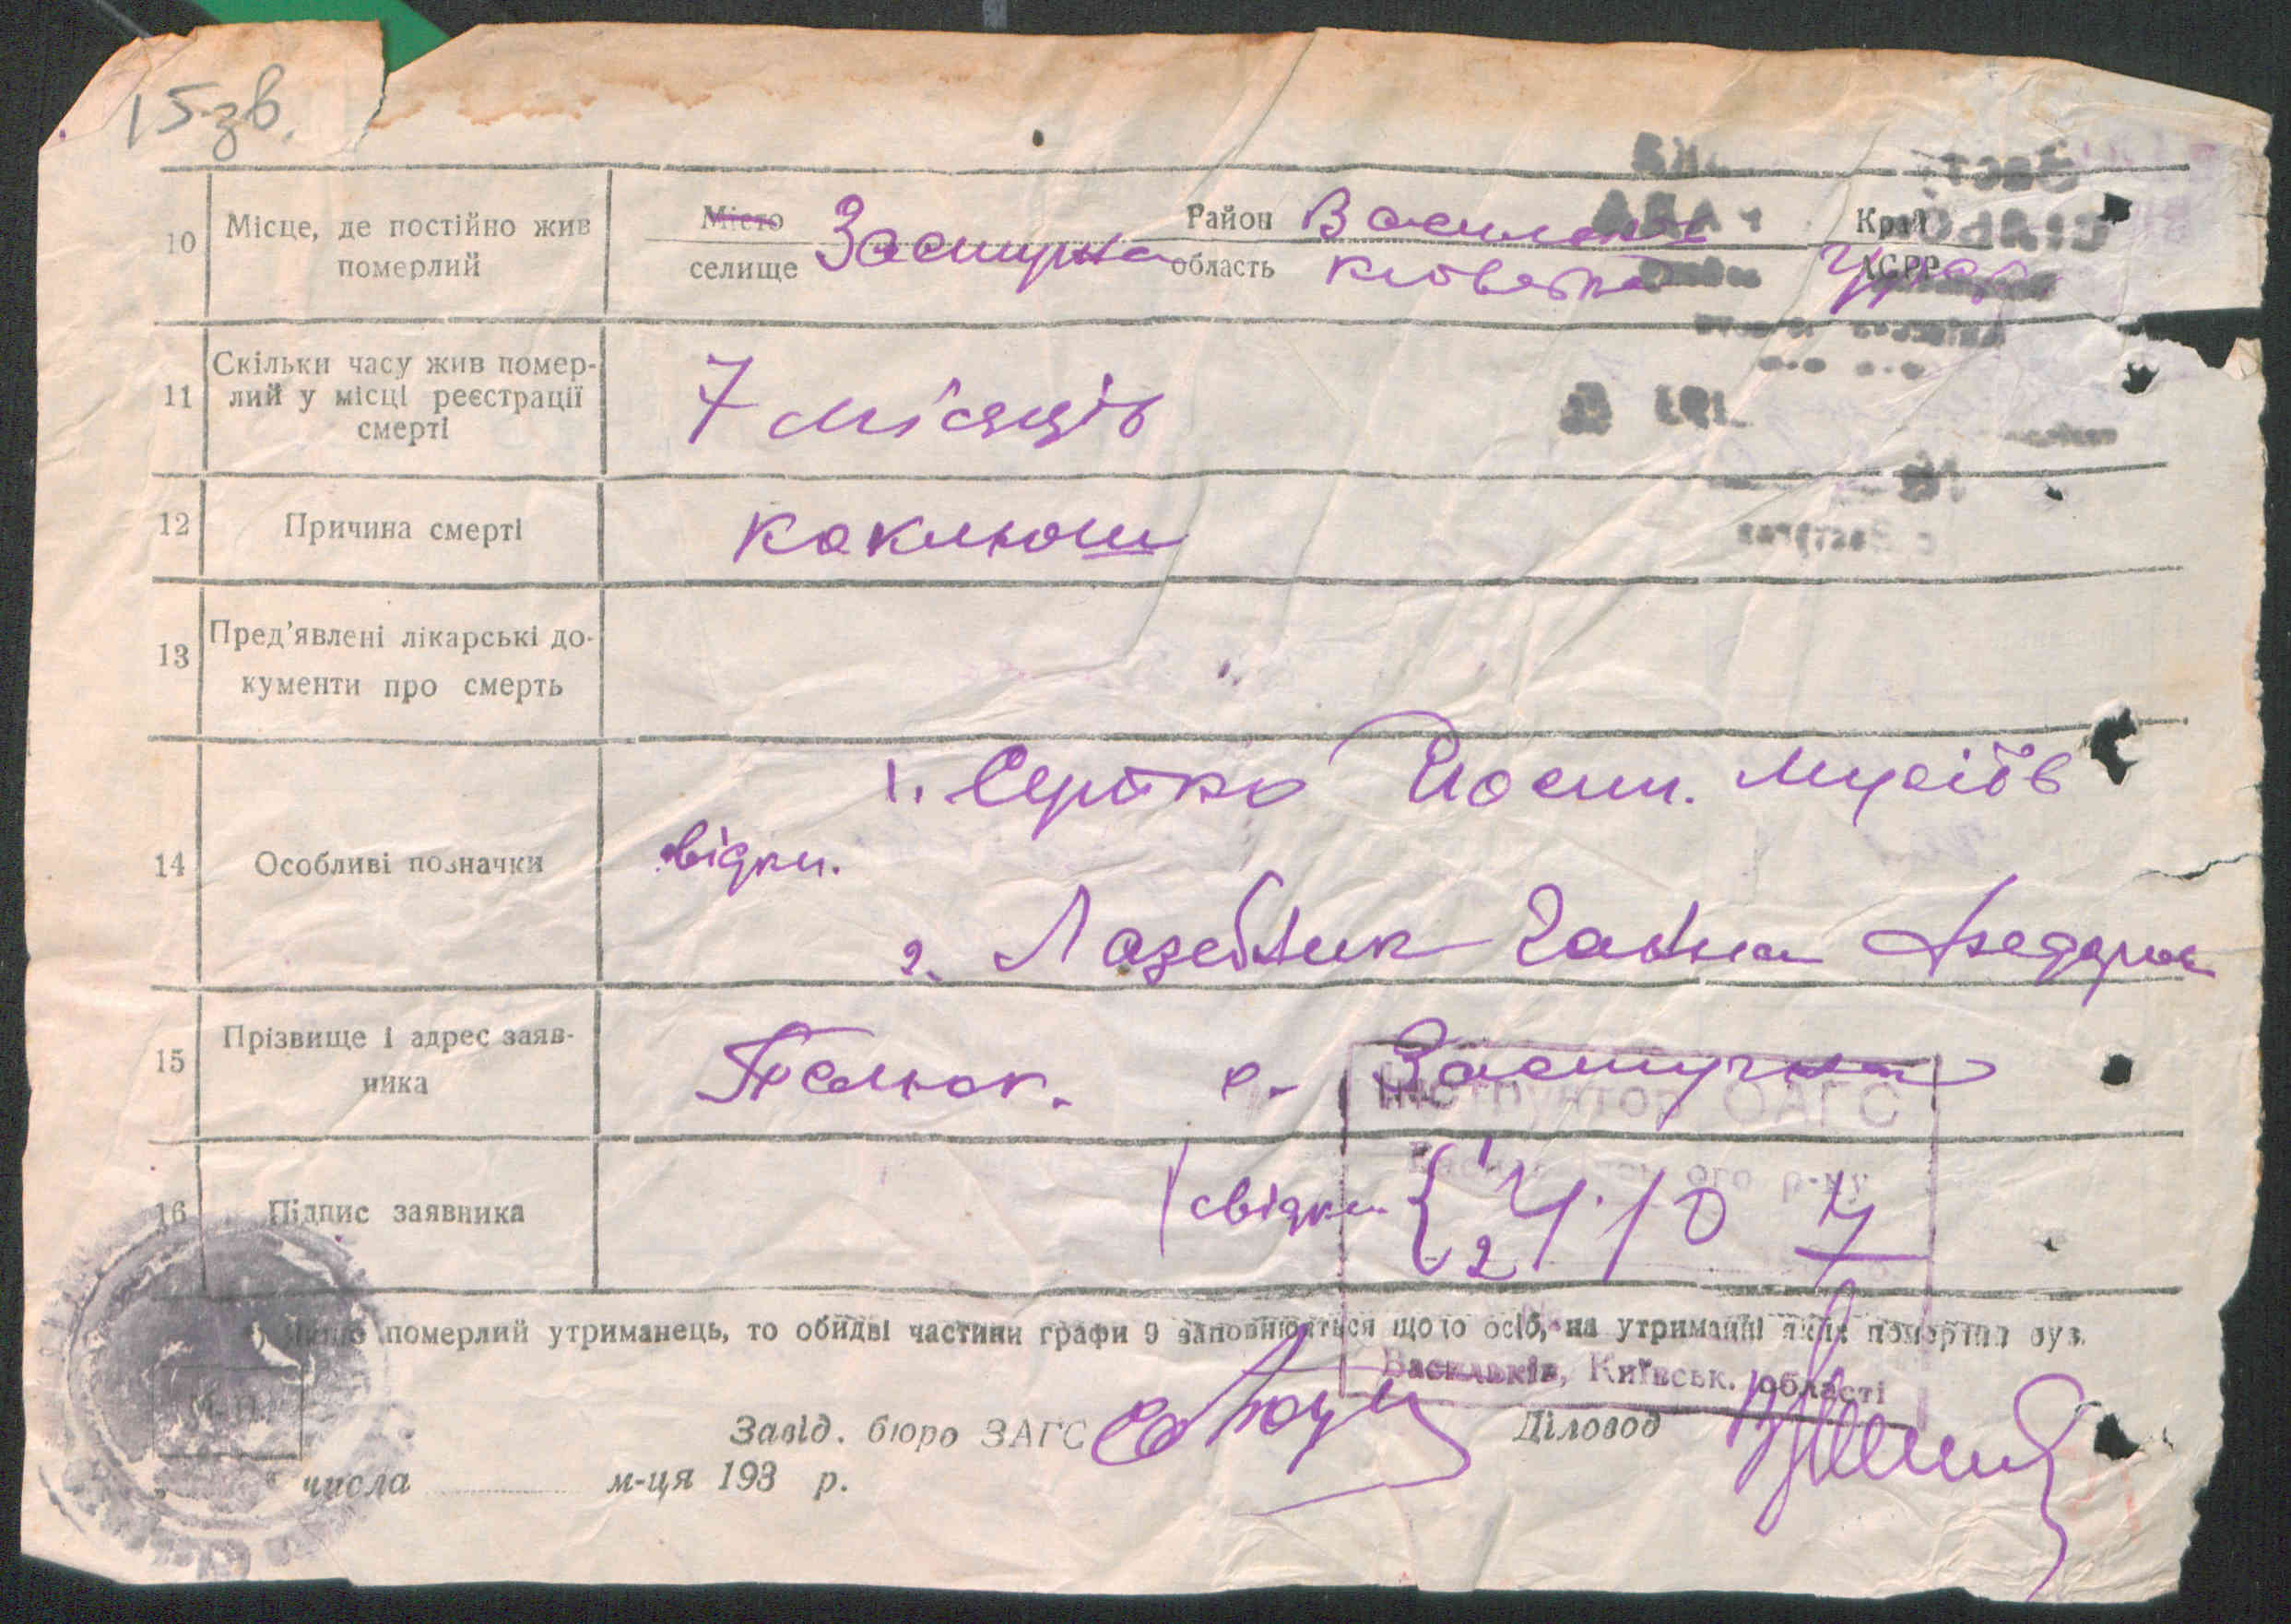 15 зв.
10 Місце, де постійно жив померлий
Місто селище Застугна Район Васильків область Київська Край АСРР УРСР
11 Скільки часу жив помер-
лий у місці реєстрації
смерті
7 місяців
12 Причина смерті коклюш
13 Пред'явлені лікарські до-
кументи про смерть
1. Йосип. Мусіїв
14 Особливі позначки свідки.
2. Лазебник Ганна Федоров
15 Прізвище і адрес заяв-
ника
с. Застугна
Інструктор ОАГС
р-ну
16 Підпис заявника свідки { 1 2
померлий утриманець, то обидві частини графи 9 заповнюються щодо осіб, на утриманні яких померлий був.
Васильків, Київськ. області
Завід. бюро ЗАГС Діловод
М. П.
" " числа м-ця 193 р.